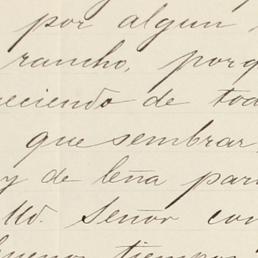 por algun
rancho, porq
reciendo de tod
que sembrar,
y de leña par
Ud. Señor con
buenos tiempos